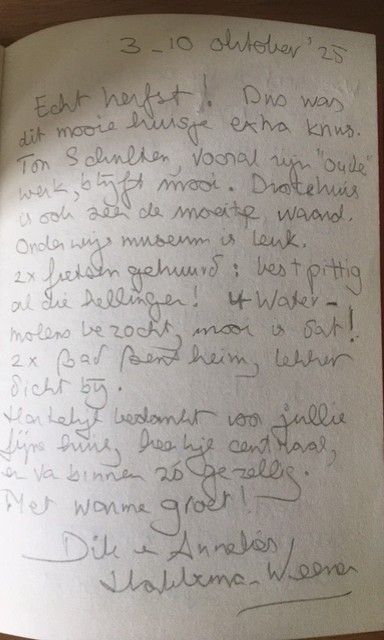 3 - 10 oktober '25
Echt herfst! Dus was
dit mooie huisje extra knus.
Ton Schulten, vooral zijn "oude"
werk, blijft mooi. Drostehuis
is ook zeer de moeite waard.
Onderwijsmuseum is leuk.
2x fietsen gehuurd: best pittig
al die hellingen! 4 Water-
molens bezocht, mooi is dat!
2x Bad Bentheim, lekker
dicht bij.
Hartelijk bedankt voor jullie
fijne huis, heerlijk centraal,
en va binnen zó gezellig.
Met warme groet!
Dik en Annelies